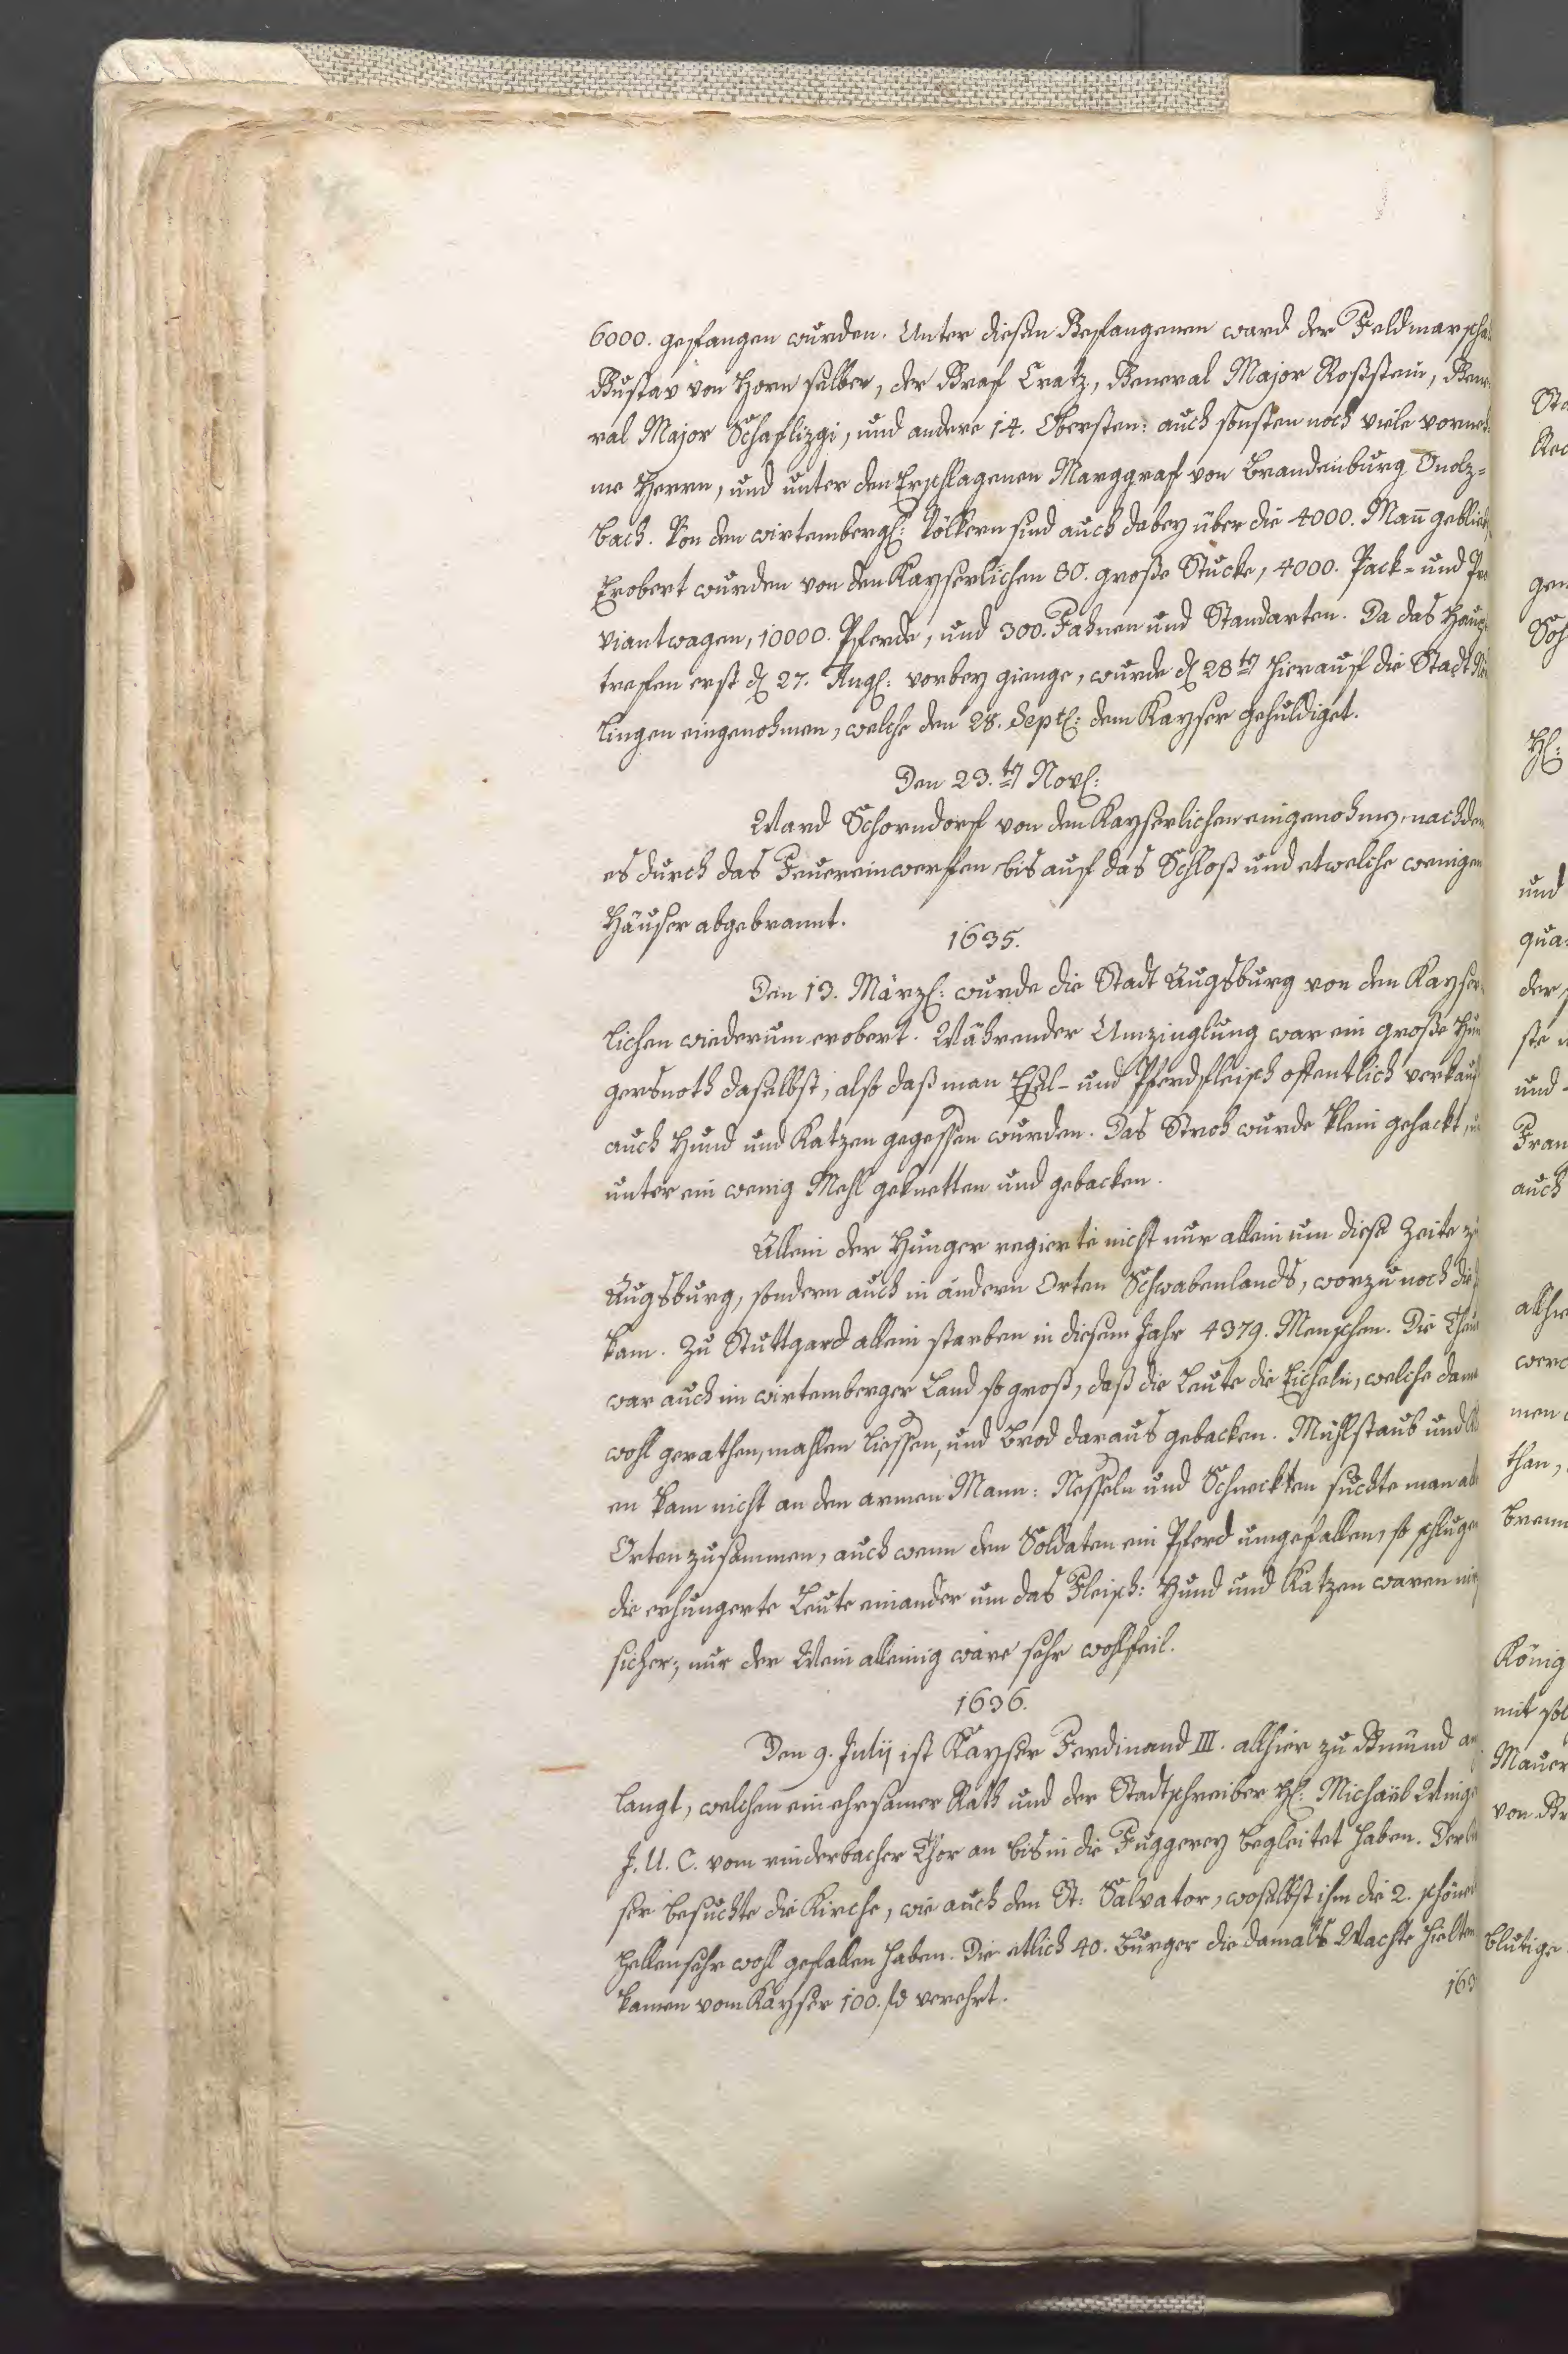 6000. gefangen wurden. Unter diesen Gefangenen ward der Feldmarscha
Gustav von Horn selber, der Graf Cratz, General Major Roßstein, Gene-
ral Major Schaflizgi, und andere 14. Obersten: auch sonsten noch viele vorneh-
me Herrn, und unter den Erschlagenen Marggraf von Brandenburg Onolz-
bach. Von den wirtemberg: Völkern sind auch dabey über die 4000. Mañ geblieb
Erobert wurden von den Kayserlichen 80. große Stucke, 4000. Pack- und Pro
viantwagen, 10000. Pferde, und 300. Fahnen und Standarten. Da das Haupt
treffen erst d 27. Aug: vorbey gienge, wurde d 28ten hierauf die Stadt Nö
lingen eingenohmen, welche den 28. Sept: dem Kayser gehuldiget.
Den 23.ten Nov:
Ward Schorndorf von den Kayserlichen eingenohmen, nachdem
es durch das Feuereinwerffen bis auf das Schloß und etwelche wenigen
Häuser abgebrannt.
1635.
Den 13. März: wurde die Stadt Augsburg von den Kayser-
lichen wiederum erobert. Währender Umzinglung war ein große Hun
gersnoth daselbst, also daß man Esel- und Pferdfleisch offentlich verkauf
auch Hund und Katzen gegessen wurden. Das Stroh wurde klein gehackt, u
unter ein wenig Mehl geknetten und gebacken.
Allein der Hunger regierte nicht nur allein um diese Zeite zu
Augsburg, sondern auch in andern Orten Schwabenlands, worzu noch die
kam. Zu Stuttgard allein starben in diesem Jahr 4379. Menschen. Die Theu
war auch im wirtemberger Land so groß, daß die Leute die Eicheln, welche dama
wohl gerathen, mahlen liessen, und Brod daraus gebacken. Mühlstaub und Kl
en kam nicht an den armen Mann: Nesseln und Schneckten suchte man all
Orten zusammen, auch wenn den Soldaten ein Pferd umgefallen, so schlugen
die erhungerte Leute einander um das Fleisch: Hund und Katzen waren nit
sicher; nur der Wein alleinig ware sehr wohlfeil.
1636.
Den 9. Julij ist Kayser Ferdinand III. allhier zu Gmünd an
langt, welchen ein ehrsamer Rath und der Stadtschreiber H: Michaël Winge
J. U. C. vom rinderbacher Thor an bis in die Fuggerey begleitet haben. Der K
ser besuchte die Kirche, wie auch den St: Salvator, woselbst ihm die 2. schönen
pellen sehr wohl gefallen haben. Die etlich 40. Burger die damals Wachte hielten
kamen vom Kayser 100. fl verehrt.
163